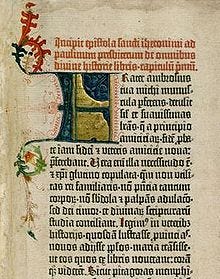 Incipit epistola sancti iheronimi ad
paulinum presbiterum de omnibus
divine historie libris capitulū pmū.
Frater ambrosius
tua michi munu-
scula pferens. detulit
sil et suavissimas
lrās. q̄ a principio
amiciciar. fidē pba-
te iam fidei et veteris amicicie nova
pferebant. Vera eni illa necessitudo ē.
et xpi glutino copulata. qm̄ non utili-
tas rei familiaris. nō pn̄cia tantum
corpoꝝ. nō sbdola et palpās adulacio.
sed dei timor. et divinaꝝ scripturarum
studia conciliant. Legim⁹ in veteribus
historiis. quosdā lustrasse provīcias.
novos adisse plōs. maria trāsisse.
ut eos quos ex libris noverant: corā
qꝫ viderēt. Sicut pitagoras memphi-